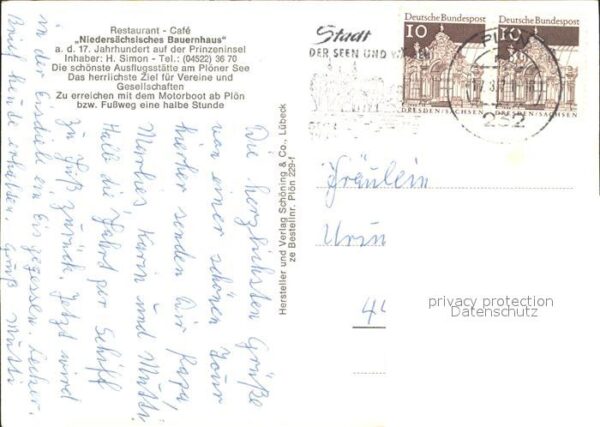 Restaurant - Café
„Niedersächsisches Bauernhaus"
a. d. 17. Jahrhundert auf der Prinzeninsel
Inhaber: H. Simon - Tel.: (04522) 36 70
Die schönste Ausflugsstätte am Plöner See
Das herrlichste Ziel für Vereine und
Gesellschaften
Zu erreichen mit dem Motorboot ab Plön
bzw. Fußweg eine halbe Stunde
Die herzlichsten Grüße
von einer schönen Tour
hierher senden Dir Papa,
Karin und Mutti
Halb die Fahrt per Schiff
zu Fuß zurück. Jetzt wird
in der Eisdiele ein Eis gegessen. Lecker.
Brief heute erhalten. Gruß Mutti
Hersteller und Verlag Schöning & Co., Lübeck
ze Bestellnr. Plön 229-f
Stadt
DER SEEN UND
Deutsche Bundespost
10
DRESDEN/SACHSEN
Deutsche Bundespost
10
DRESDEN/SACHSEN
PLÖN
232
Fräulein
privacy protection
Datenschutz